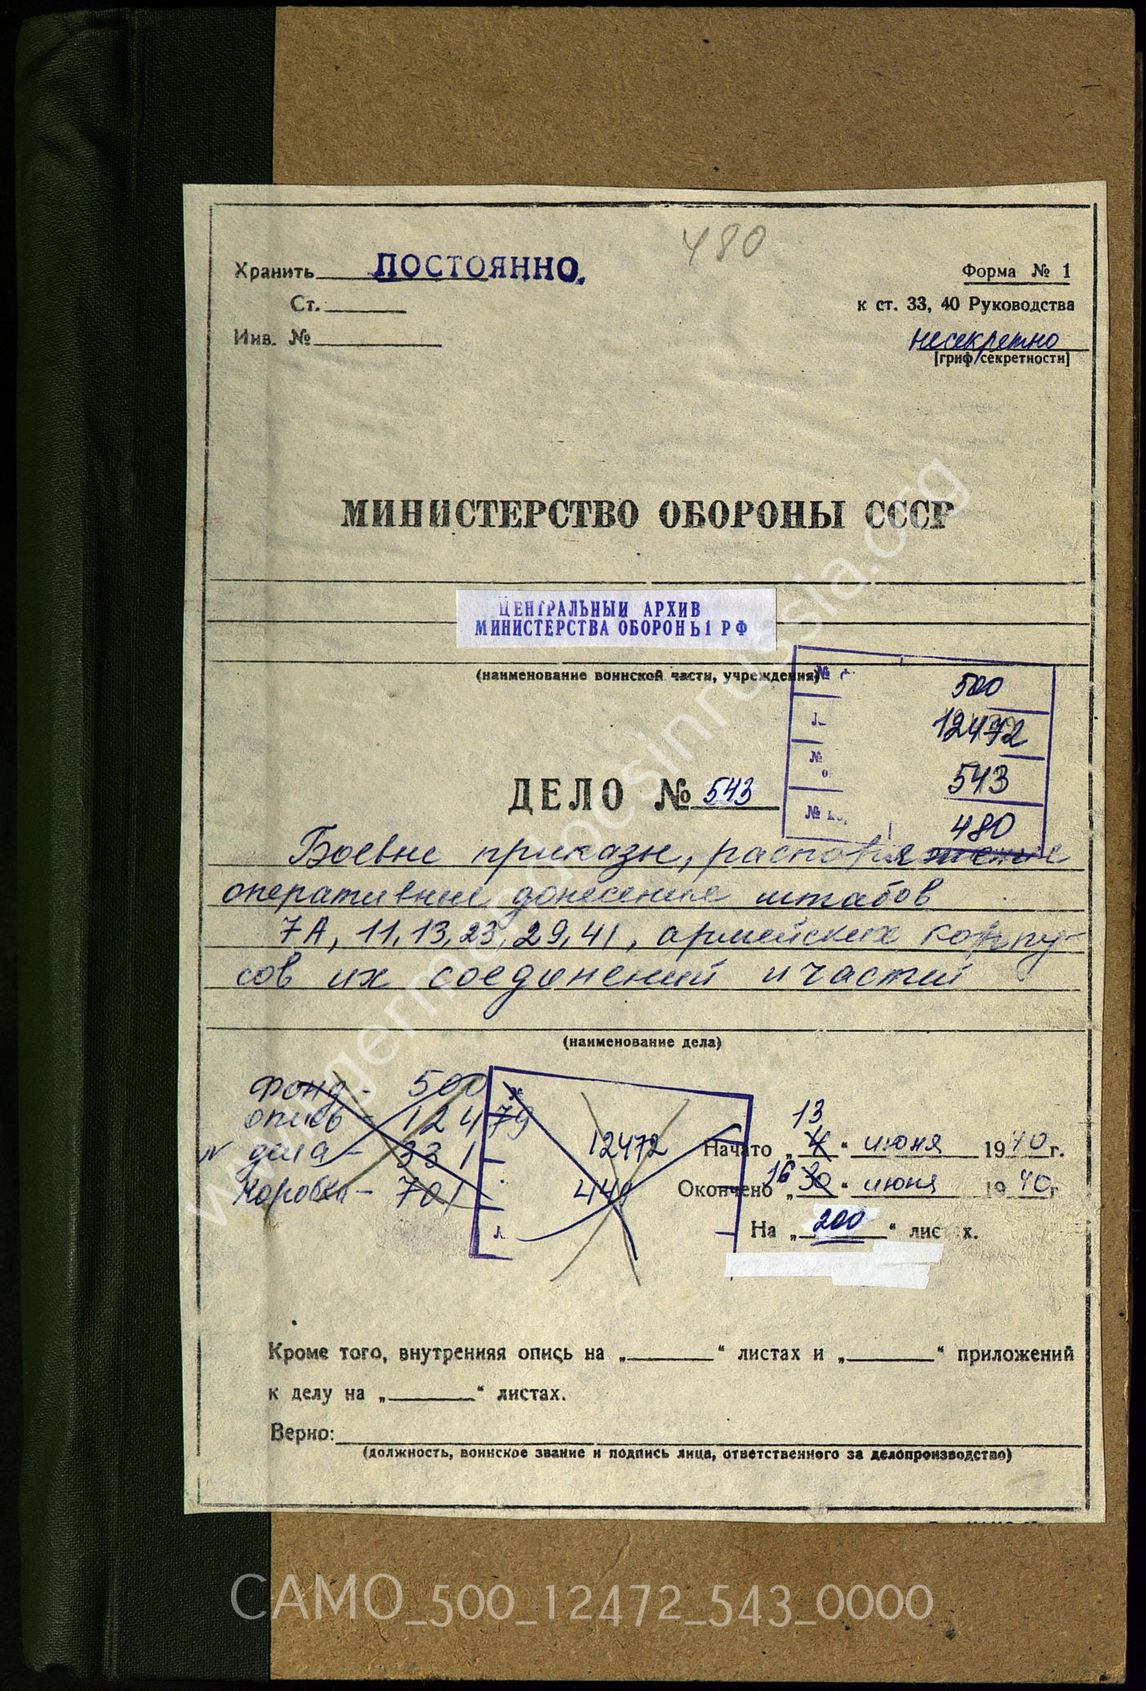 480
Хранить ПОСТОЯННО.
Форма № 1
Ст.
к ст. 33, 40 Руководства
Инв. №
несекретно
[гриф секретности]
МИНИСТЕРСТВО ОБОРОНЫ СССР
ЦЕНТРАЛЬНЫЙ АРХИВ
МИНИСТЕРСТВА ОБОРОНЫ РФ
(наименование воинской части, учреждения)
№
500
12472
№
543
№
480
ДЕЛО № 543
Боевые приказы, распоряжения
оперативные донесения штабов
7А, 11, 13, 23, 29, 41, армейских корпу-
сов их соединений и частей
(наименование дела)
Фонд - 500
опись - 12479
№ дела - 331
Коробка - 701
12472
449
13
Начато „4“ июня 1940 г.
16
Окончено „30“ июня 1940 г
На „200“ листах.
Кроме того, внутренняя опись на „ “ листах и „ “ приложений
к делу на „ “ листах.
Верно:
(должность, воинское звание и подпись лица, ответственного за делопроизводство)
www.germandocsinrussia.org
CAMO_500_12472_543_0000